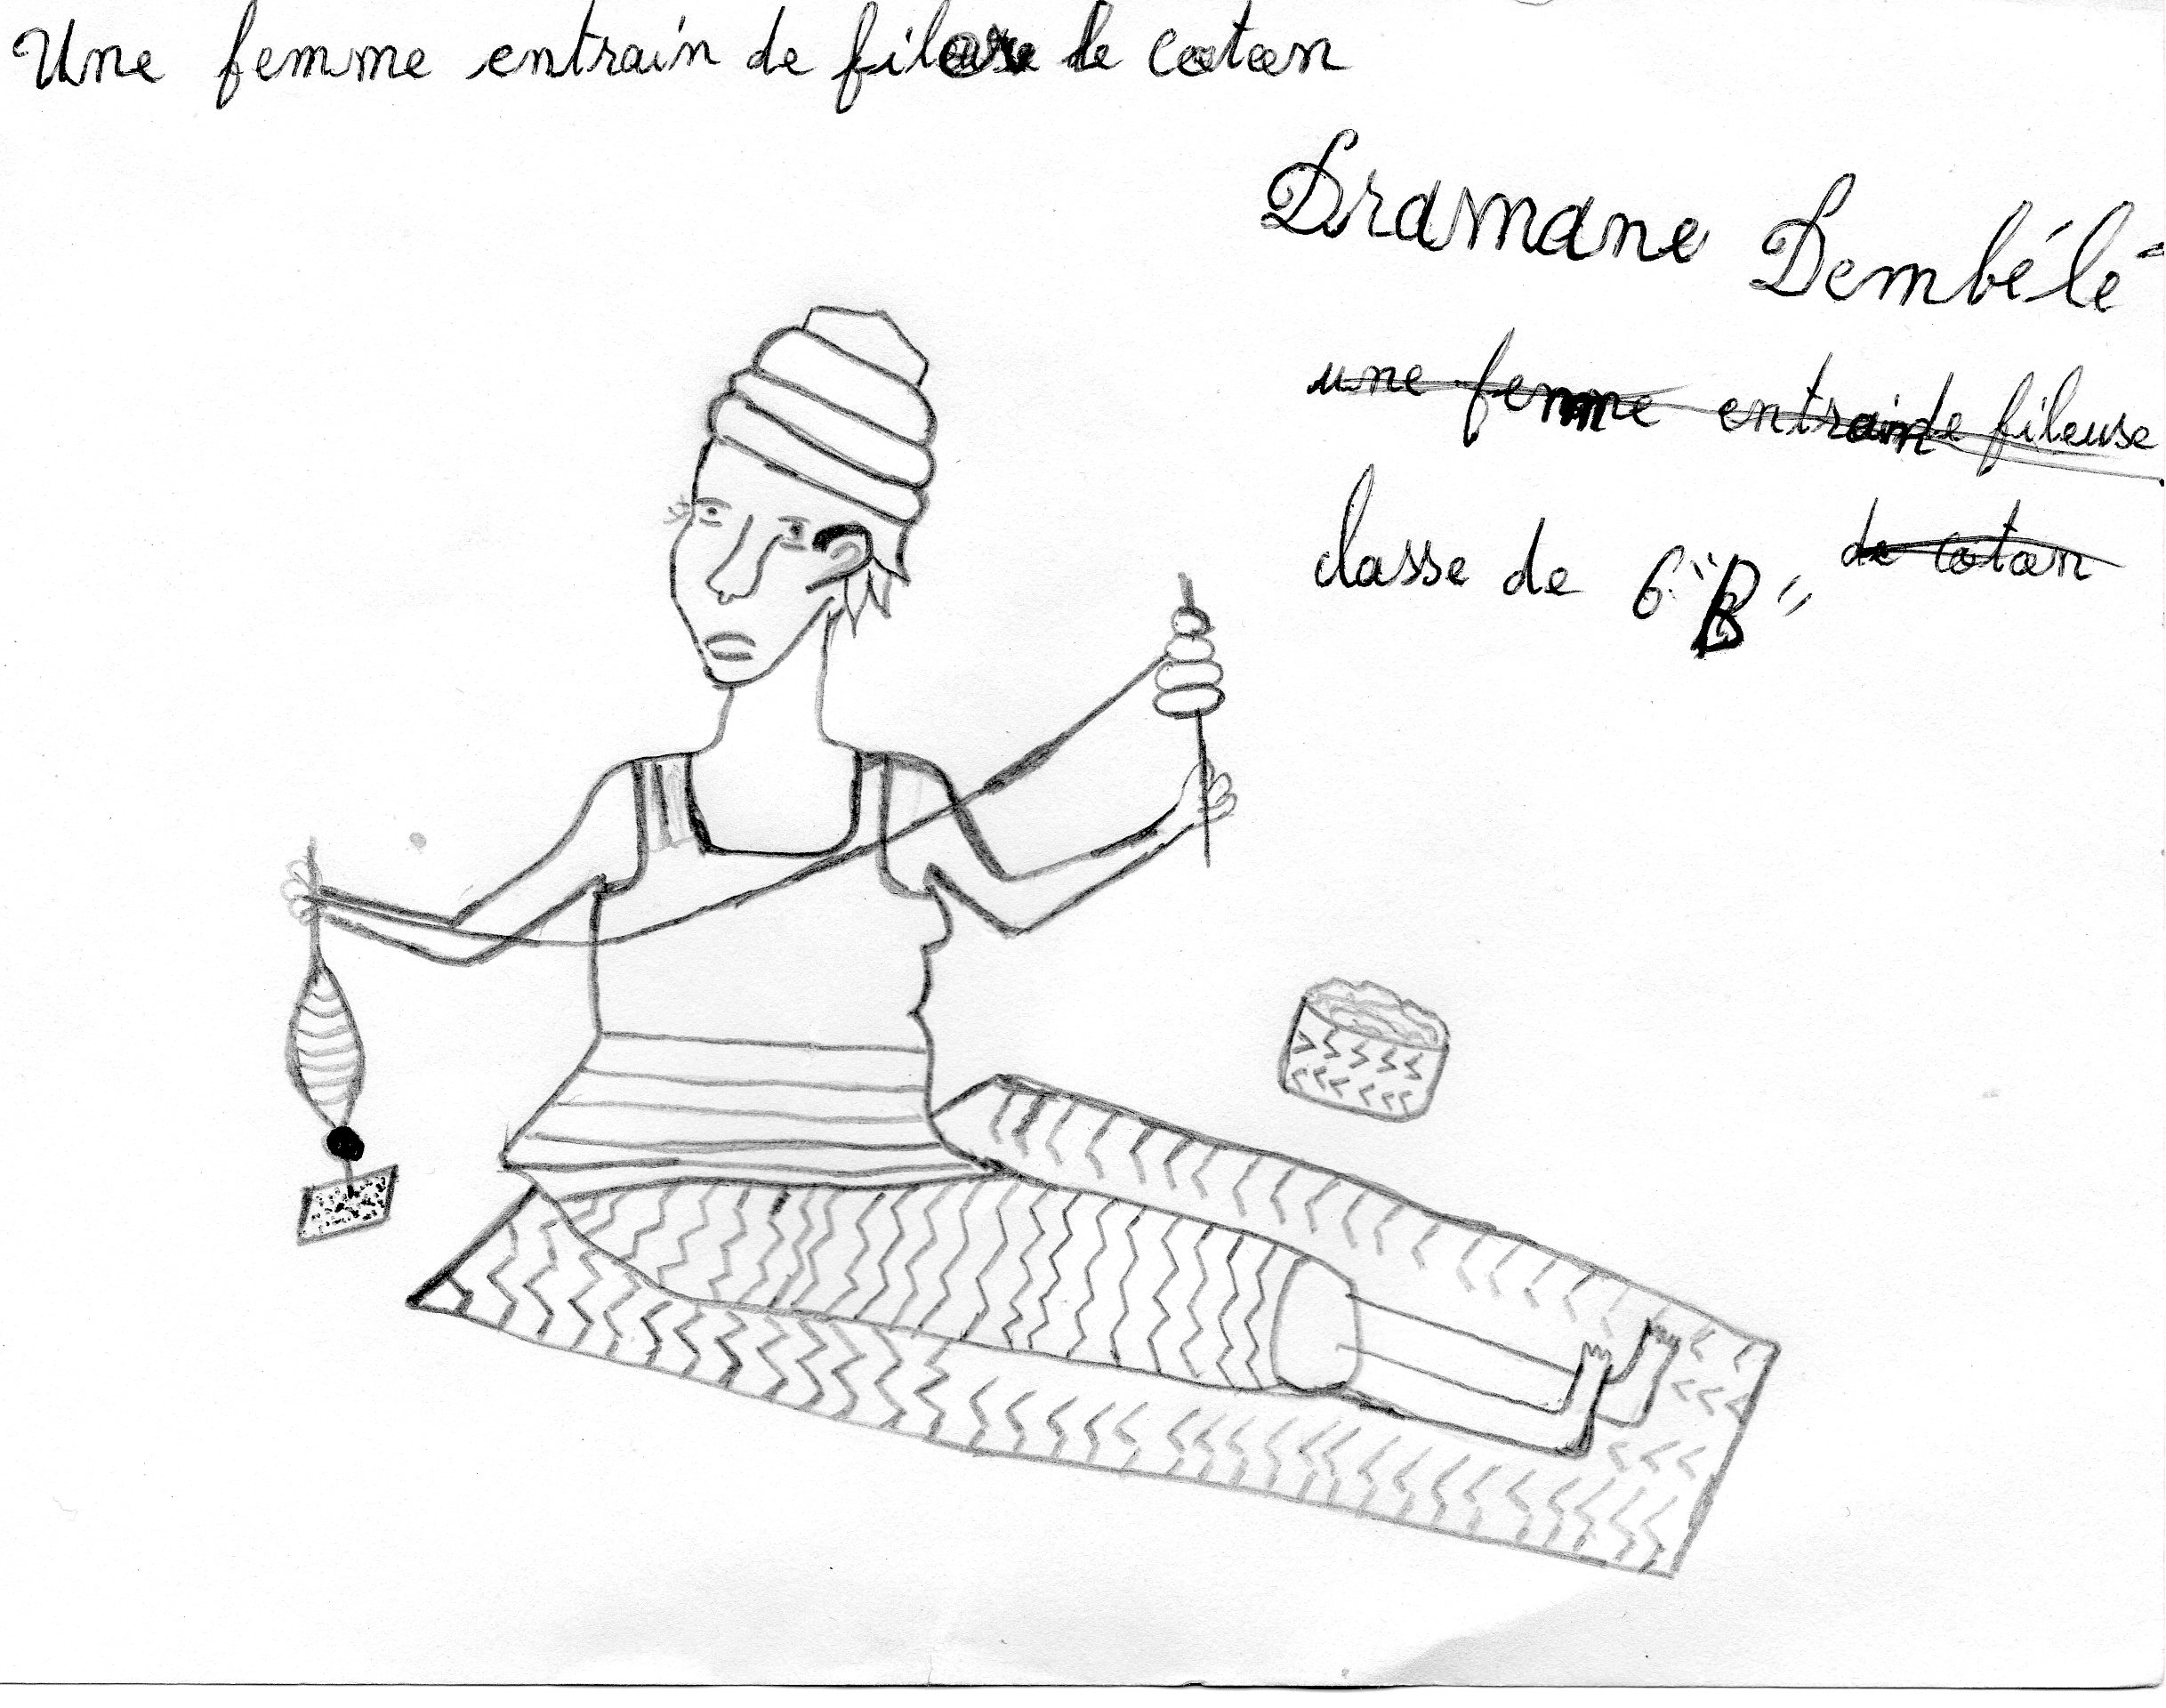 Une femme entrain de filer le coton
Dramane Dembélé
une femme entrain de fileuse
de coton
classe de 6 "B"